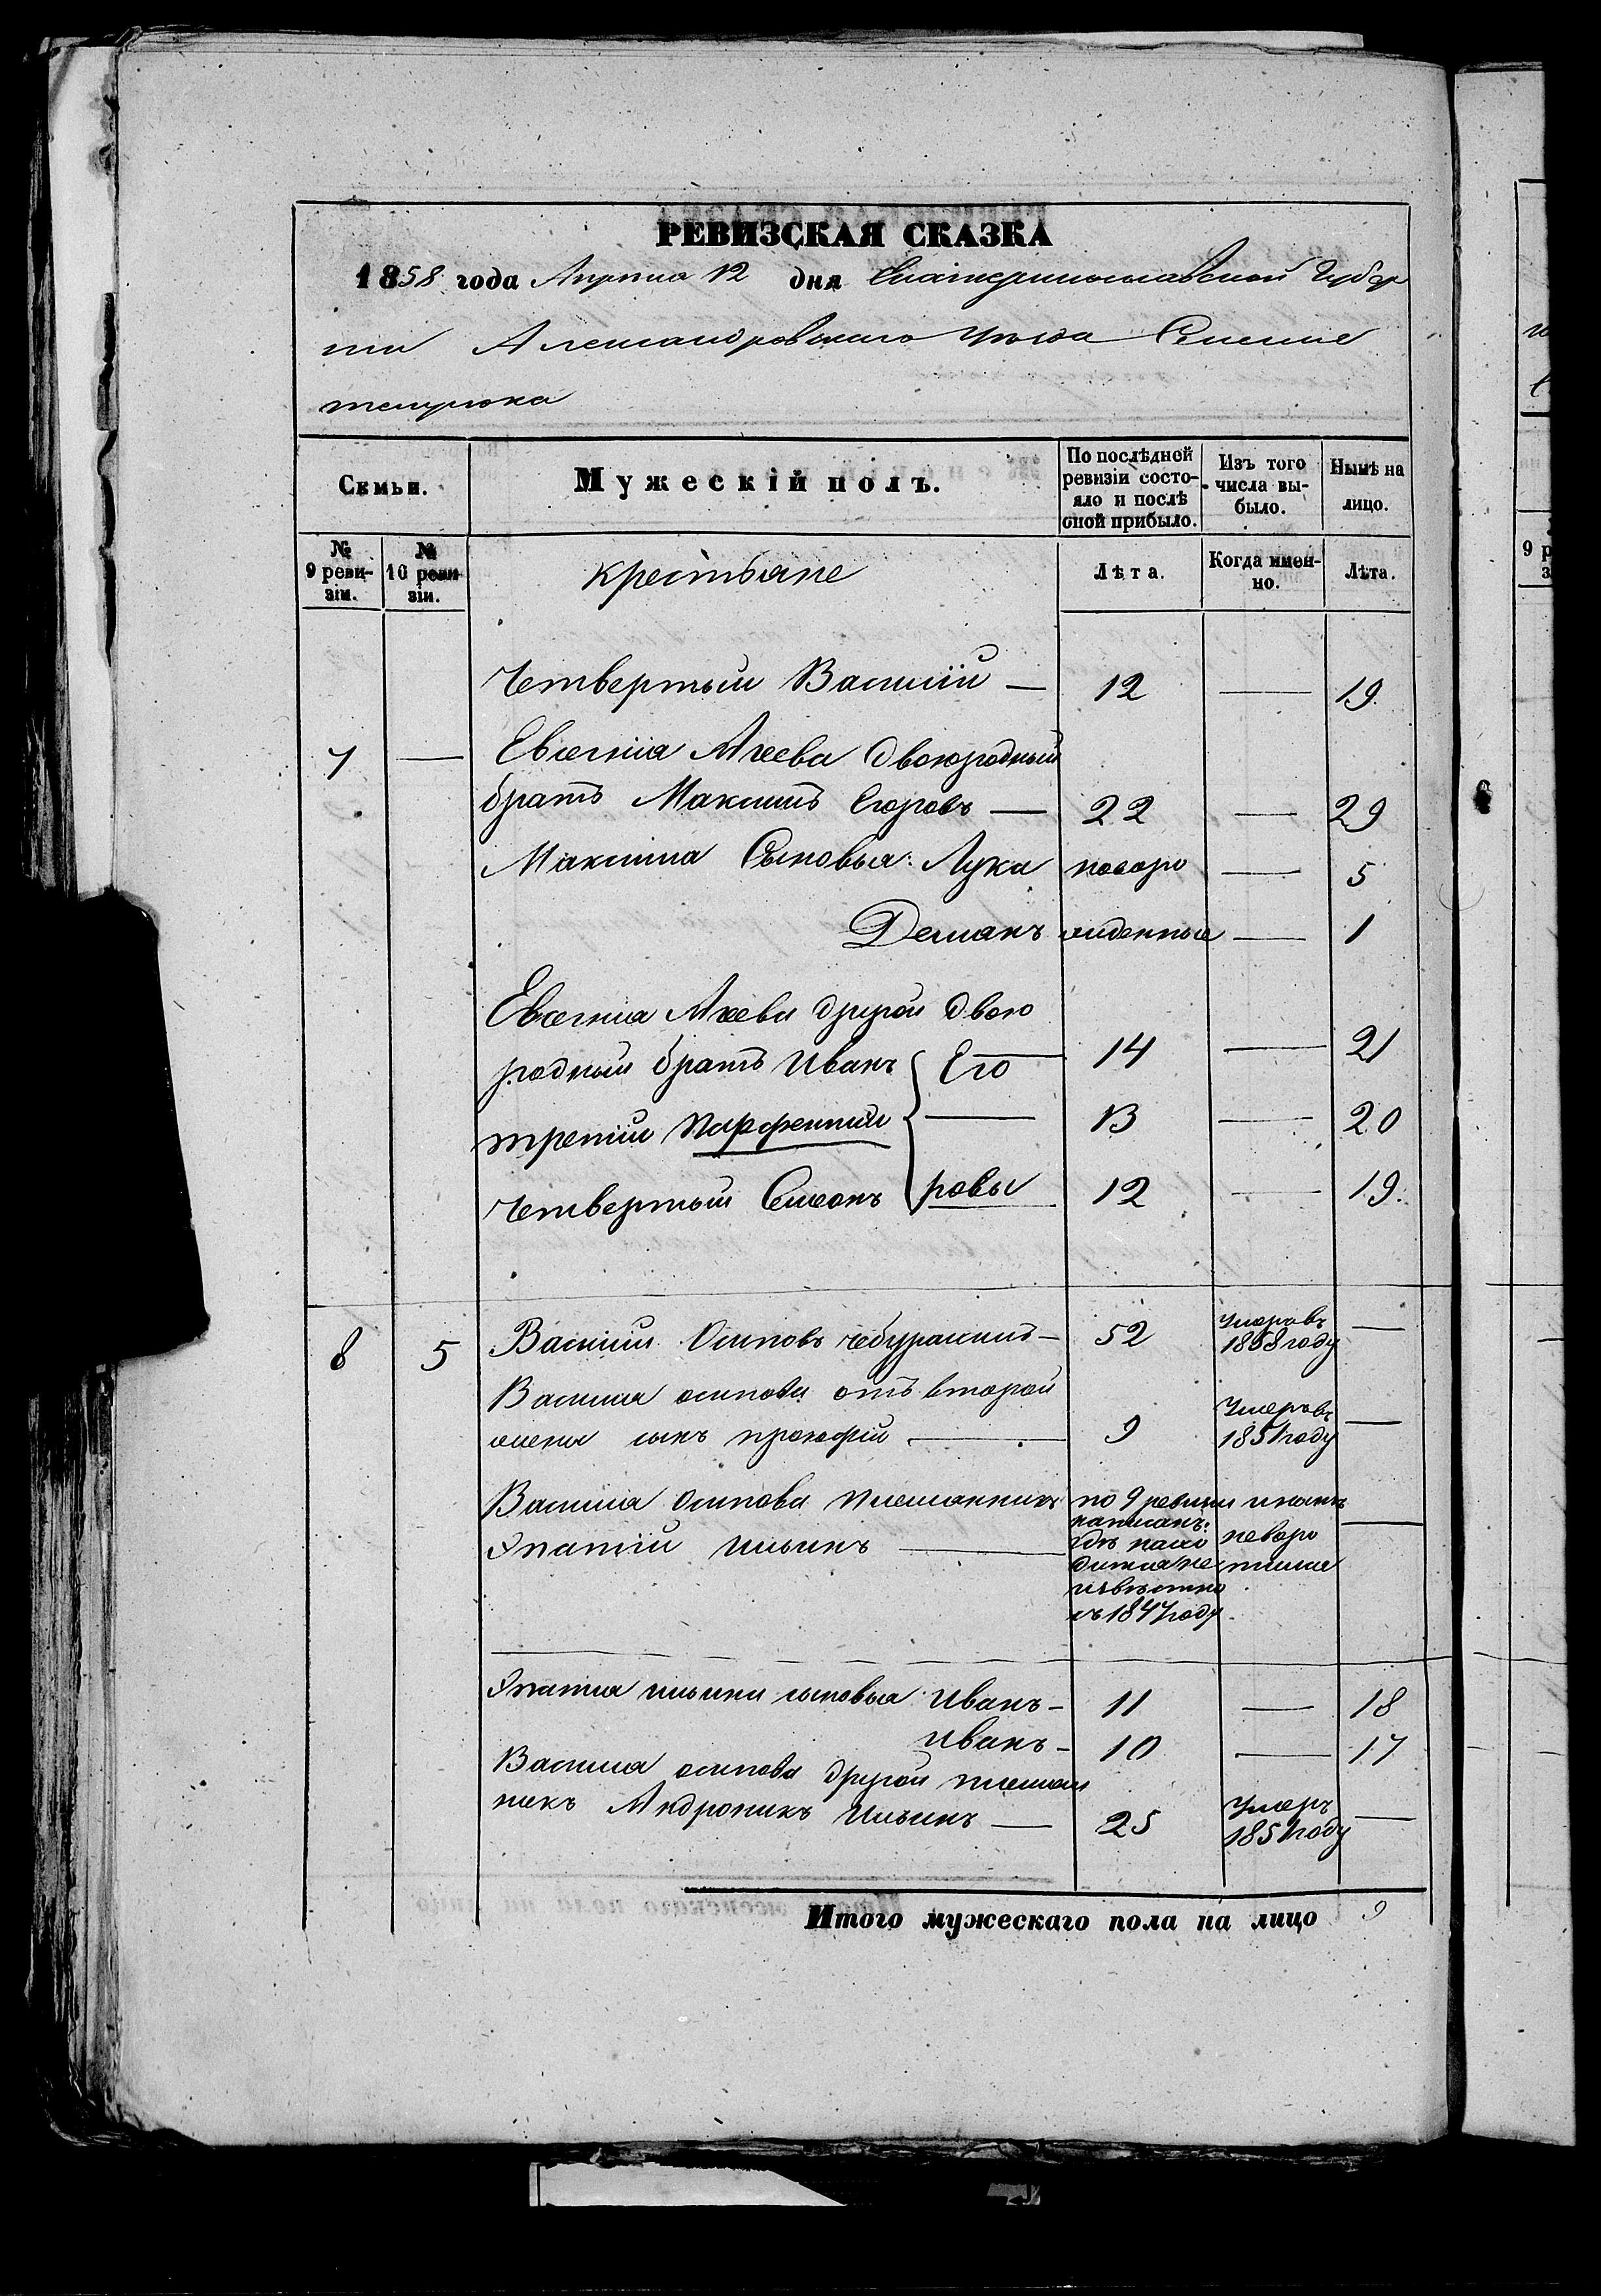 РЕВИЗСКАЯ СКАЗКА
1858 года Апреля 12 дня Екатеринославской Губер
нiи Александровскаго Уезда Селенiе
темрюка
Семьи. Мужескiй полъ. По послѣдней ревизiи состо-яло и послѣ оной прибыло. Изъ того числа вы-было. Нынѣ на лицо.
№ 9 реви-зiи. № 10 реви-зiи. крестьяне Лѣта. Когда имен-но. Лѣта.
Четвертый Василiй — 12 — 19.
7 — Евсегнiя Агеева двоюродный
братъ Максимъ Егоровъ — 22 — 29
Максима Сыновья: Лука новоро — 5
Демянъ жденные — 1
Евсегнiя Агеева другой двою
родный братъ Иванъ Его 14 — 21
третiй Парфентiй — 13 — 20
Четвертый Семенъ ровы 12 — 19.
8 5 Василiй Осиповъ 52 Умеръ въ 1858 году —
Василия осипова отъ второй
жены сынъ прокофiй — 9 Умеръ въ 1851 году —
Василия Осипова племянникъ по 9 ревизiи
Игнатiй Ильинъ — написанъ: где нахо дится не известно съ 1847 году —
Игнатия ильина сыновья Иванъ — 11 — 18
Иванъ — 10 — 17
Василия осипова другой племян
никъ Андроникъ Ильинъ — 25 Умеръ 1851 году —
Итого мужескаго пола на лицо 9